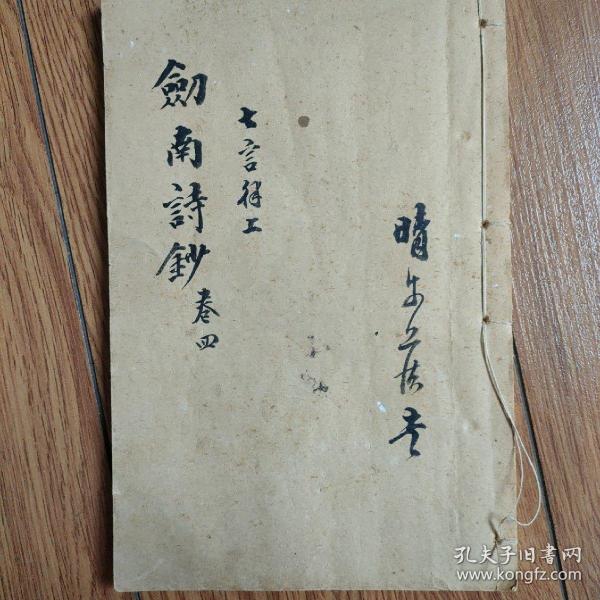 晴
七言律上
劒南詩鈔
卷四
孔夫子旧书网
www.kongfz.com